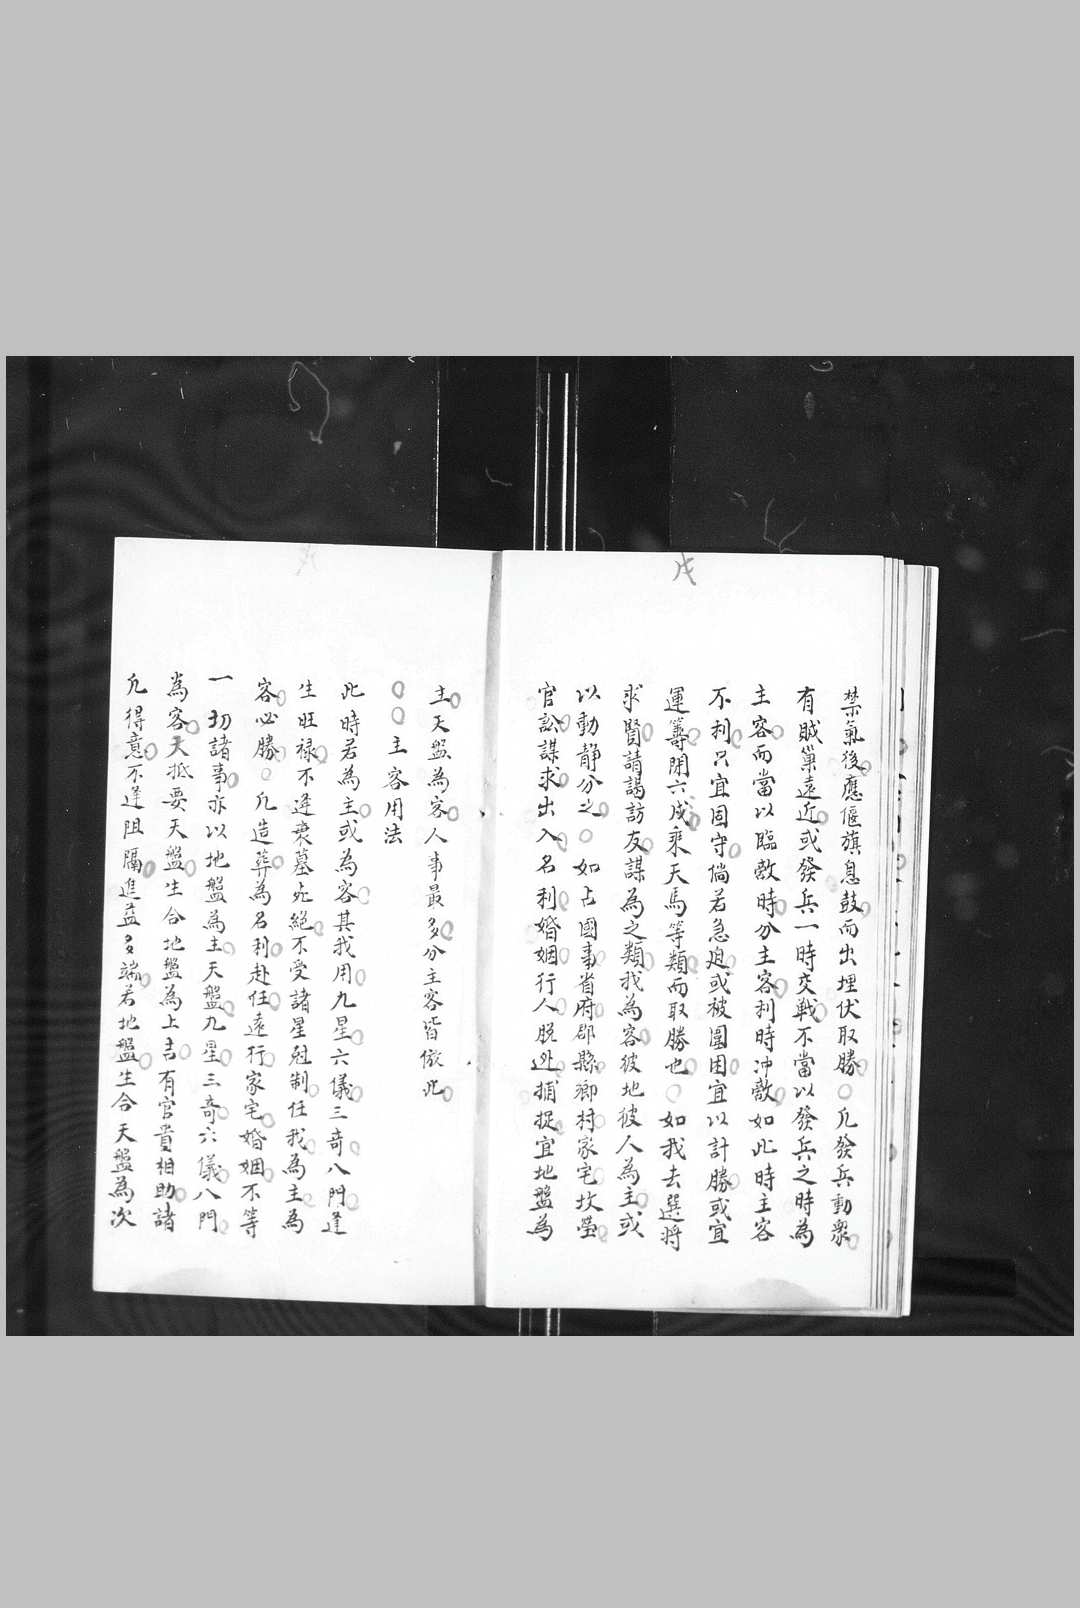 戌
禁氣後應偃旗息鼓而出埋伏取勝〇凢發兵動衆
有賊巢遠近或發兵一時交戰不當以發兵之時為
主客而當以臨敵時分主客利時冲敵如此時主客
不利只宜固守倘若急迫或被圍困宜以計勝或宜
運籌閉六戍乘天馬等類而取勝也〇如我去選將
求賢請謁訪友謀為之類我為客彼地彼人為主或
以動靜分之〇如占國事省府郡縣鄉村家宅坟塋
官訟謀求出入名利婚姻行人脱迯捕捉宜地盤為
主天盤為客人事最多分主客皆倣此
〇〇主客用法
此時若為主或為客其我用九星六儀三奇八門逢
生旺禄不逢衰墓死絕不受諸星尅制任我為主為
客必勝〇凢造葬為名利赴任遠行家宅婚姻不等
一切諸事亦以地盤為主天盤九星三奇六儀八門
為客大抵要天盤生合地盤為上吉有官貴相助諸
凢得意不逢阻隔進益多端若地盤生合天盤為次